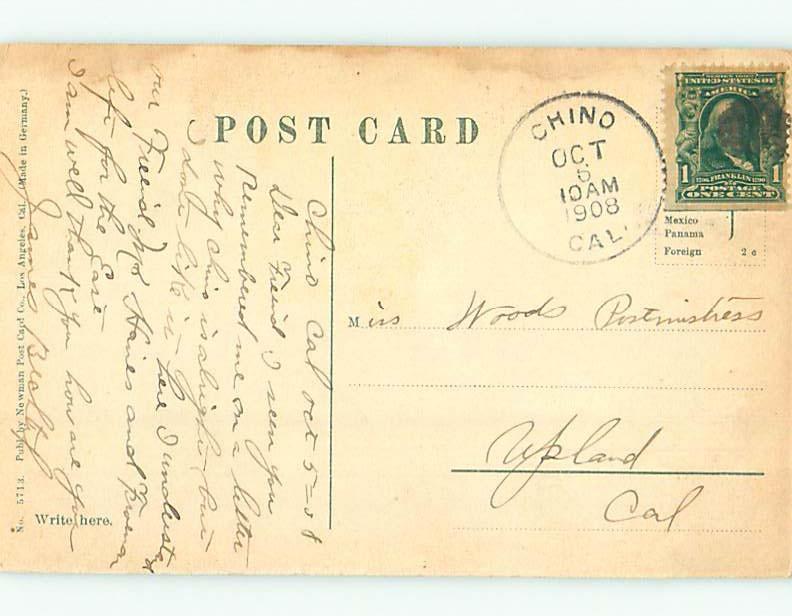 POST CARD
CHINO
OCT
5
10AM
1908
CAL.
SERIES 1902
UNITED STATES OF
AMERICA
1 1706 FRANKLIN 1790 1
POSTAGE
ONE CENT
Mexico
Panama
Foreign 2 c
Miss Woods Postmistress
Upland
Cal
Chino Cal Oct 5=08
Dear Friend I seen you
Remembered me on a letter
why Chino is alright but
dont like it here I understa
our Friend Mr Haines and
life for the East
I am well thank you how are you
James
Write here.
No. 5713. Publ. by Newman Post Card Co., Los Angeles, Cal. (Made in Germany.)